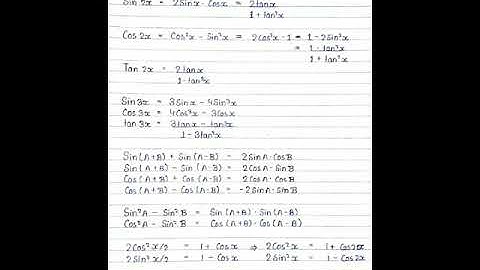 Sin 2x = 2Sinx · Cosx = 2tanx / 1 + tan²x
Cos 2x = Cos²x – Sin²x = 2Cos²x - 1 = 1 - 2Sin²x
= 1 - tan²x / 1 + tan²x
Tan 2x = 2tanx / 1 - tan²x
Sin 3x = 3Sinx – 4Sin³x
Cos 3x = 4Cos³x – 3Cosx
tan 3x = 3tanx – tan³x / 1 - 3tan²x
Sin(A+B) + Sin(A-B) = 2SinA·CosB
Sin(A+B) – Sin(A-B) = 2CosA·SinB
Cos(A+B) + Cos(A-B) = 2CosA·CosB
Cos(A+B) – Cos(A-B) = -2SinA·SinB
Sin²A – Sin²B = Sin(A+B)·Sin(A-B)
Cos²A – Sin²B = Cos(A+B)·Cos(A-B)
2Cos²x/2 = 1 + Cosx ⇒ 2Cos²x = 1 + Cos2x
2Sin²x/2 = 1 – Cosx 2Sin²x = 1 – Cos2x